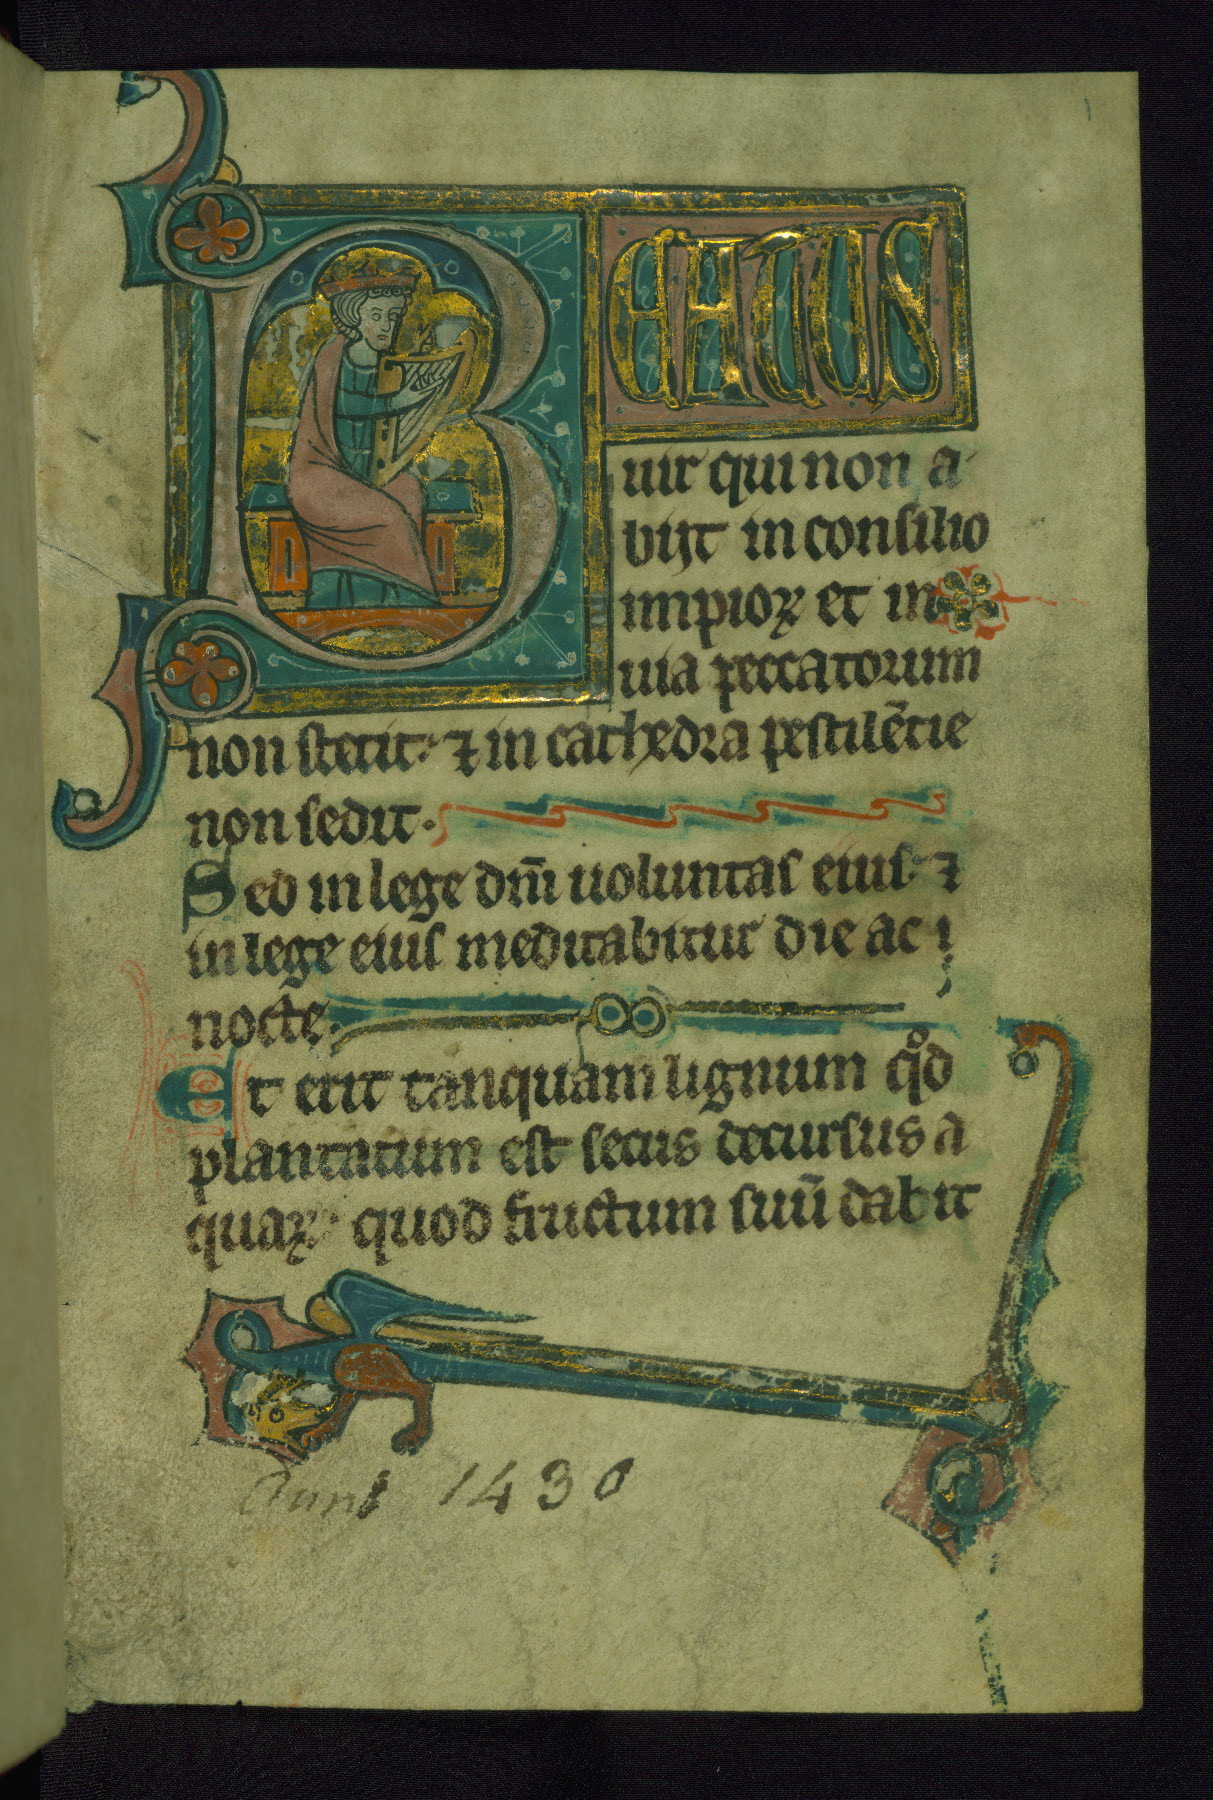 BEATUS
uir qui non a
bijt in consilio
impioꝝ et in
uia peccatorum
non stetit: ⁊ in cathedra pestilētie
non sedit.
Sed in lege dn̄i uoluntas eius: ⁊
in lege eius meditabitur die ac
nocte.
Et erit tanquam lignum qͦd
plantatum est secus decursus a
quaꝝ: quod fructum suū dabit
Anni 1430